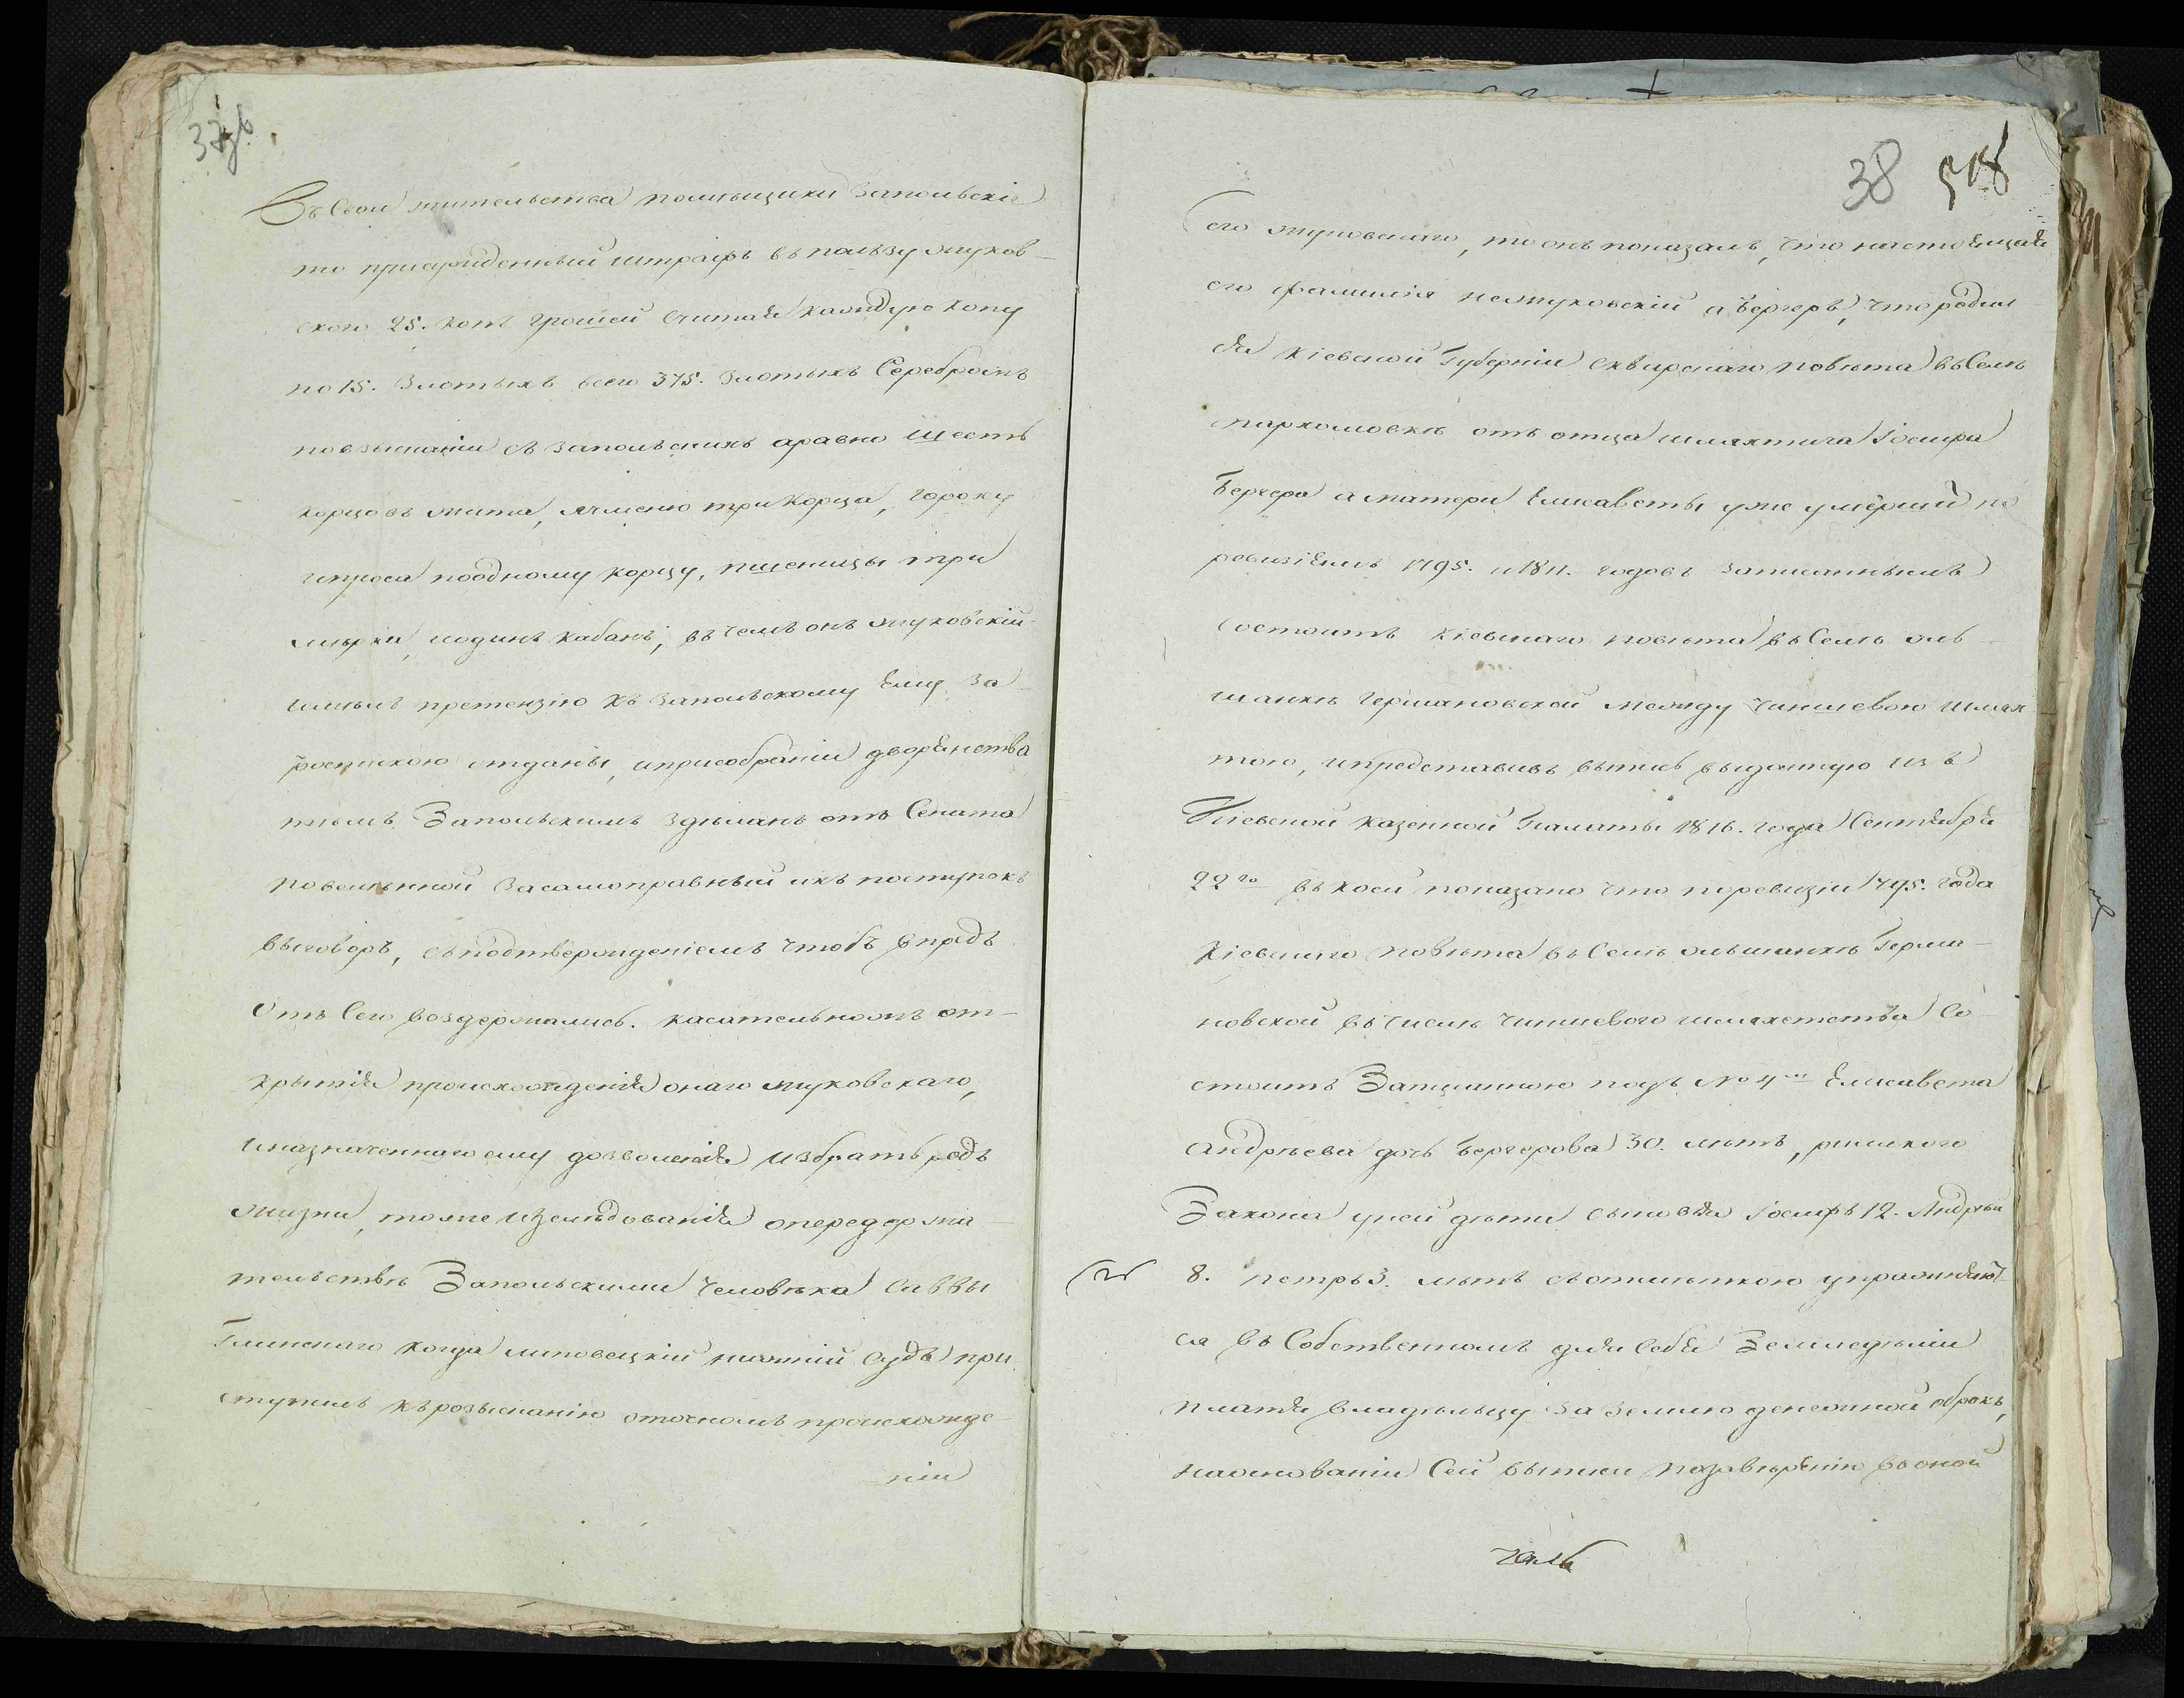 37 зв.
Въ Свои жительства помѣщики Запольскіе
то присужденный штрафъ въ пользу жуков-
ского 25. копъ грошей Считая каждую копу
по 15. Злотыхъ всего 375. Злотыхъ Серебромъ
повзысканіи съ Запольскихъ аравно шесть
корцовъ жита, ячменю три Корца, гороху
ипроса поодному корцу, пшеницы три
мѣрки, иодинъ кабанъ, въ чемъ онъ жуковскій
имѣлъ претензію къ Запольскому Ему За-
роспискою отданы, априсобраніи дворянства
тѣмъ Запольскимъ Здѣланъ отъ Сената
повелѣнной Засамоправный ихъ поступокъ
выговоръ, съподтвержденіемъ чтобъ впредь
Отъ Сего воздержались. касательножъ от-
крытія происхожденія онаго жуковскаго,
иназначеннаго ему дозволенія избрать родъ
жизни, тоже изслѣдованія опередержа
тельствѣ Запольскими человѣка Саввы
Глинского когда липовецкій нижній Судъ при
ступилъ къ розысканію оточномъ происхожде-
ніи
38 518
его жуковскаго, то онъ показалъ, что настоящая
его фамилія нежуковскій а Бергеръ, что родил
ся Кіевской Губерніи Сквирскаго повѣта въ Селѣ
пархомовкѣ отъ отца шляхтича Іосифа
Бергера а матери Елисаветы уже умершій по
ревизіямъ 1795. и 1811. годовъ Записаннымъ
Состоитъ Кіевскаго повѣта въ Селѣ оль
шанкѣ Германовской между чиншевою шлях
тою, ипредставивъ выпись выданную изъ
Кіевской Казенной Палаты 1816. года Сентября
22го въ коей показано что поревизіи 1795. года
Кіевскаго повѣта въ Селѣ ольшанкѣ Герма-
новской въ числѣ чиншевого шляхетства Со
стоитъ Записанною подъ № 4мъ Елисавета
андрѣева дочь Бергерова 30. лѣтъ, римского
Закона уней дѣти сыновья Іосифъ 12. Андрей
8. петръ 3. лѣтъ съотмѣткою упражняют
ся въ Собственномъ для Себя Земледѣліи
платя владѣльцу За Землю денежной оброкъ,
наоснованіи Сей выписи позавѣренію въ оной